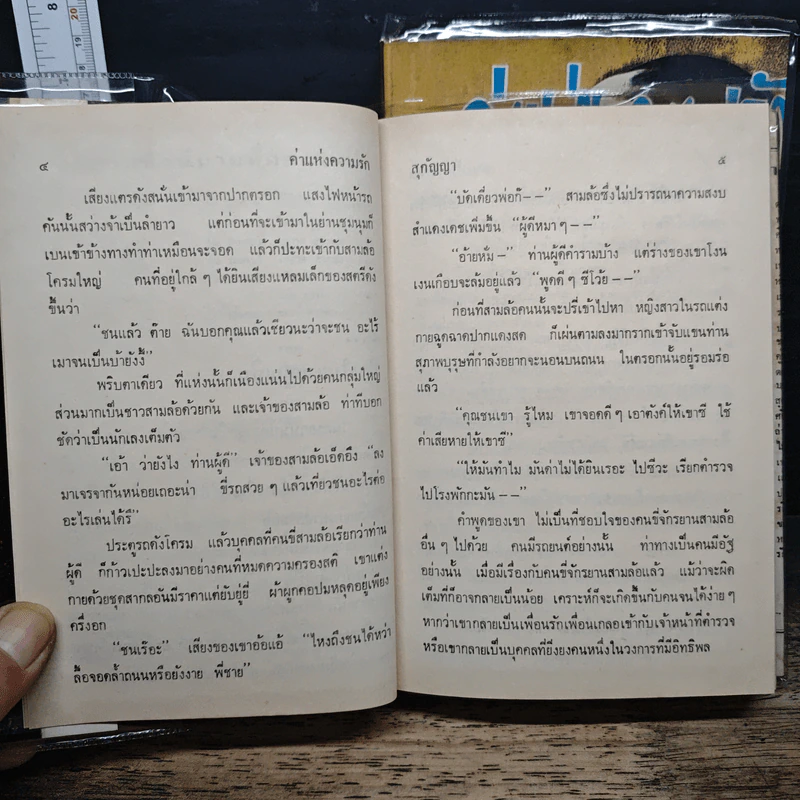 ๔ ค่าแห่งความรัก
เสียงแตรดังสนั่นเข้ามาจากปากตรอก แสงไฟหน้ารถ
คันนั้นสว่างจ้าเป็นลำยาว แต่ก่อนที่จะเข้ามาในย่านชุมนุมก็
เบนเข้าข้างทางทำท่าเหมือนจะจอด แล้วก็ปะทะเข้ากับสามล้อ
โครมใหญ่ คนที่อยู่ใกล้ ๆ ได้ยินเสียงแหลมเล็กของสตรีดัง
ขึ้นว่า
“ชนแล้ว ต๊าย ฉันบอกคุณแล้วเชียวนะว่าจะชน อะไร้
เมาจนเป็นบ้ายังงี้”
พริบตาเดียว ที่แห่งนั้นก็เนืองแน่นไปด้วยคนกลุ่มใหญ่
ส่วนมากเป็นชาวสามล้อด้วยกัน และเจ้าของสามล้อ ท่าทีบอก
ชัดว่าเป็นนักเลงเต็มตัว
“เอ้า ว่ายังไง ท่านผู้ดี” เจ้าของสามล้อเอ็ดอึง “ลง
มาเจรจากันหน่อยเถอะน่า ขี่รถสวย ๆ แล้วเที่ยวชนอะไรต่อ
อะไรเล่นได้รึ”
ประตูรถดังโครม แล้วบุคคลที่คนขี่สามล้อเรียกว่าท่าน
ผู้ดี ก็ก้าวเปะปะลงมาอย่างคนที่หมดความครองสติ เขาแต่ง
กายด้วยชุดสากลอันมีราคาแต่ยับยู่ยี่ ผ้าผูกคอปมหลุดอยู่เพียง
ครึ่งอก
“ชนเร๊อะ” เสียงของเขาอ้อแอ้ “ไหงถึงชนได้หว่า
ล้อจอดคล้ำถนนหรือยังงาย พี่ชาย”
สุกัญญา ๕
“บัดเดี๋ยวพ่อก๊ – –” สามล้อซึ่งไม่ปรารถนาความสงบ
สำแดงเดชเพิ่มขึ้น “ผู้ดีหมา ๆ – –”
“อ้ายหั่ม –” ท่านผู้ดีคำรามบ้าง แต่ร่างของเขาโงน
เงนเกือบจะล้มอยู่แล้ว “พูดดี ๆ ซีโว้ย – –”
ก่อนที่สามล้อคนนั้นจะปรี่เข้าไปหา หญิงสาวในรถแต่ง
กายฉูดฉาดปากแดงสด ก็เผ่นตามลงมากรากเข้าจับแขนท่าน
สุภาพบุรุษที่กำลังอยากจะนอนบนถนน ในตรอกนั้นอยู่รอมร่อ
แล้ว
“คุณชนเขา รู้ไหม เขาจอดดี ๆ เอาตังค์ให้เขาซี ใช้
ค่าเสียหายให้เขาซี”
“ให้มันทำไม มันด่าไม่ได้ยินเรอะ ไปซีวะ เรียกตำรวจ
ไปโรงพักกะมัน – –”
คำพูดของเขา ไม่เป็นที่ชอบใจของคนขี่จักรยานสามล้อ
อื่น ๆ ไปด้วย คนมีรถยนต์อย่างนั้น ท่าทางเป็นคนมีอัฐ
อย่างนั้น เมื่อมีเรื่องกับคนขี่จักรยานสามล้อแล้ว แม้ว่าจะผิด
เต็มที่ก็อาจกลายเป็นน้อย เคราะห์ก็จะเกิดขึ้นกับคนจนได้ง่าย ๆ
หากว่าเขากลายเป็นเพื่อนรักเพื่อนเกลอเข้ากับเจ้าหน้าที่ตำรวจ
หรือเขากลายเป็นบุคคลที่ยิ่งยงคนหนึ่งในวงการที่มีอิทธิพล